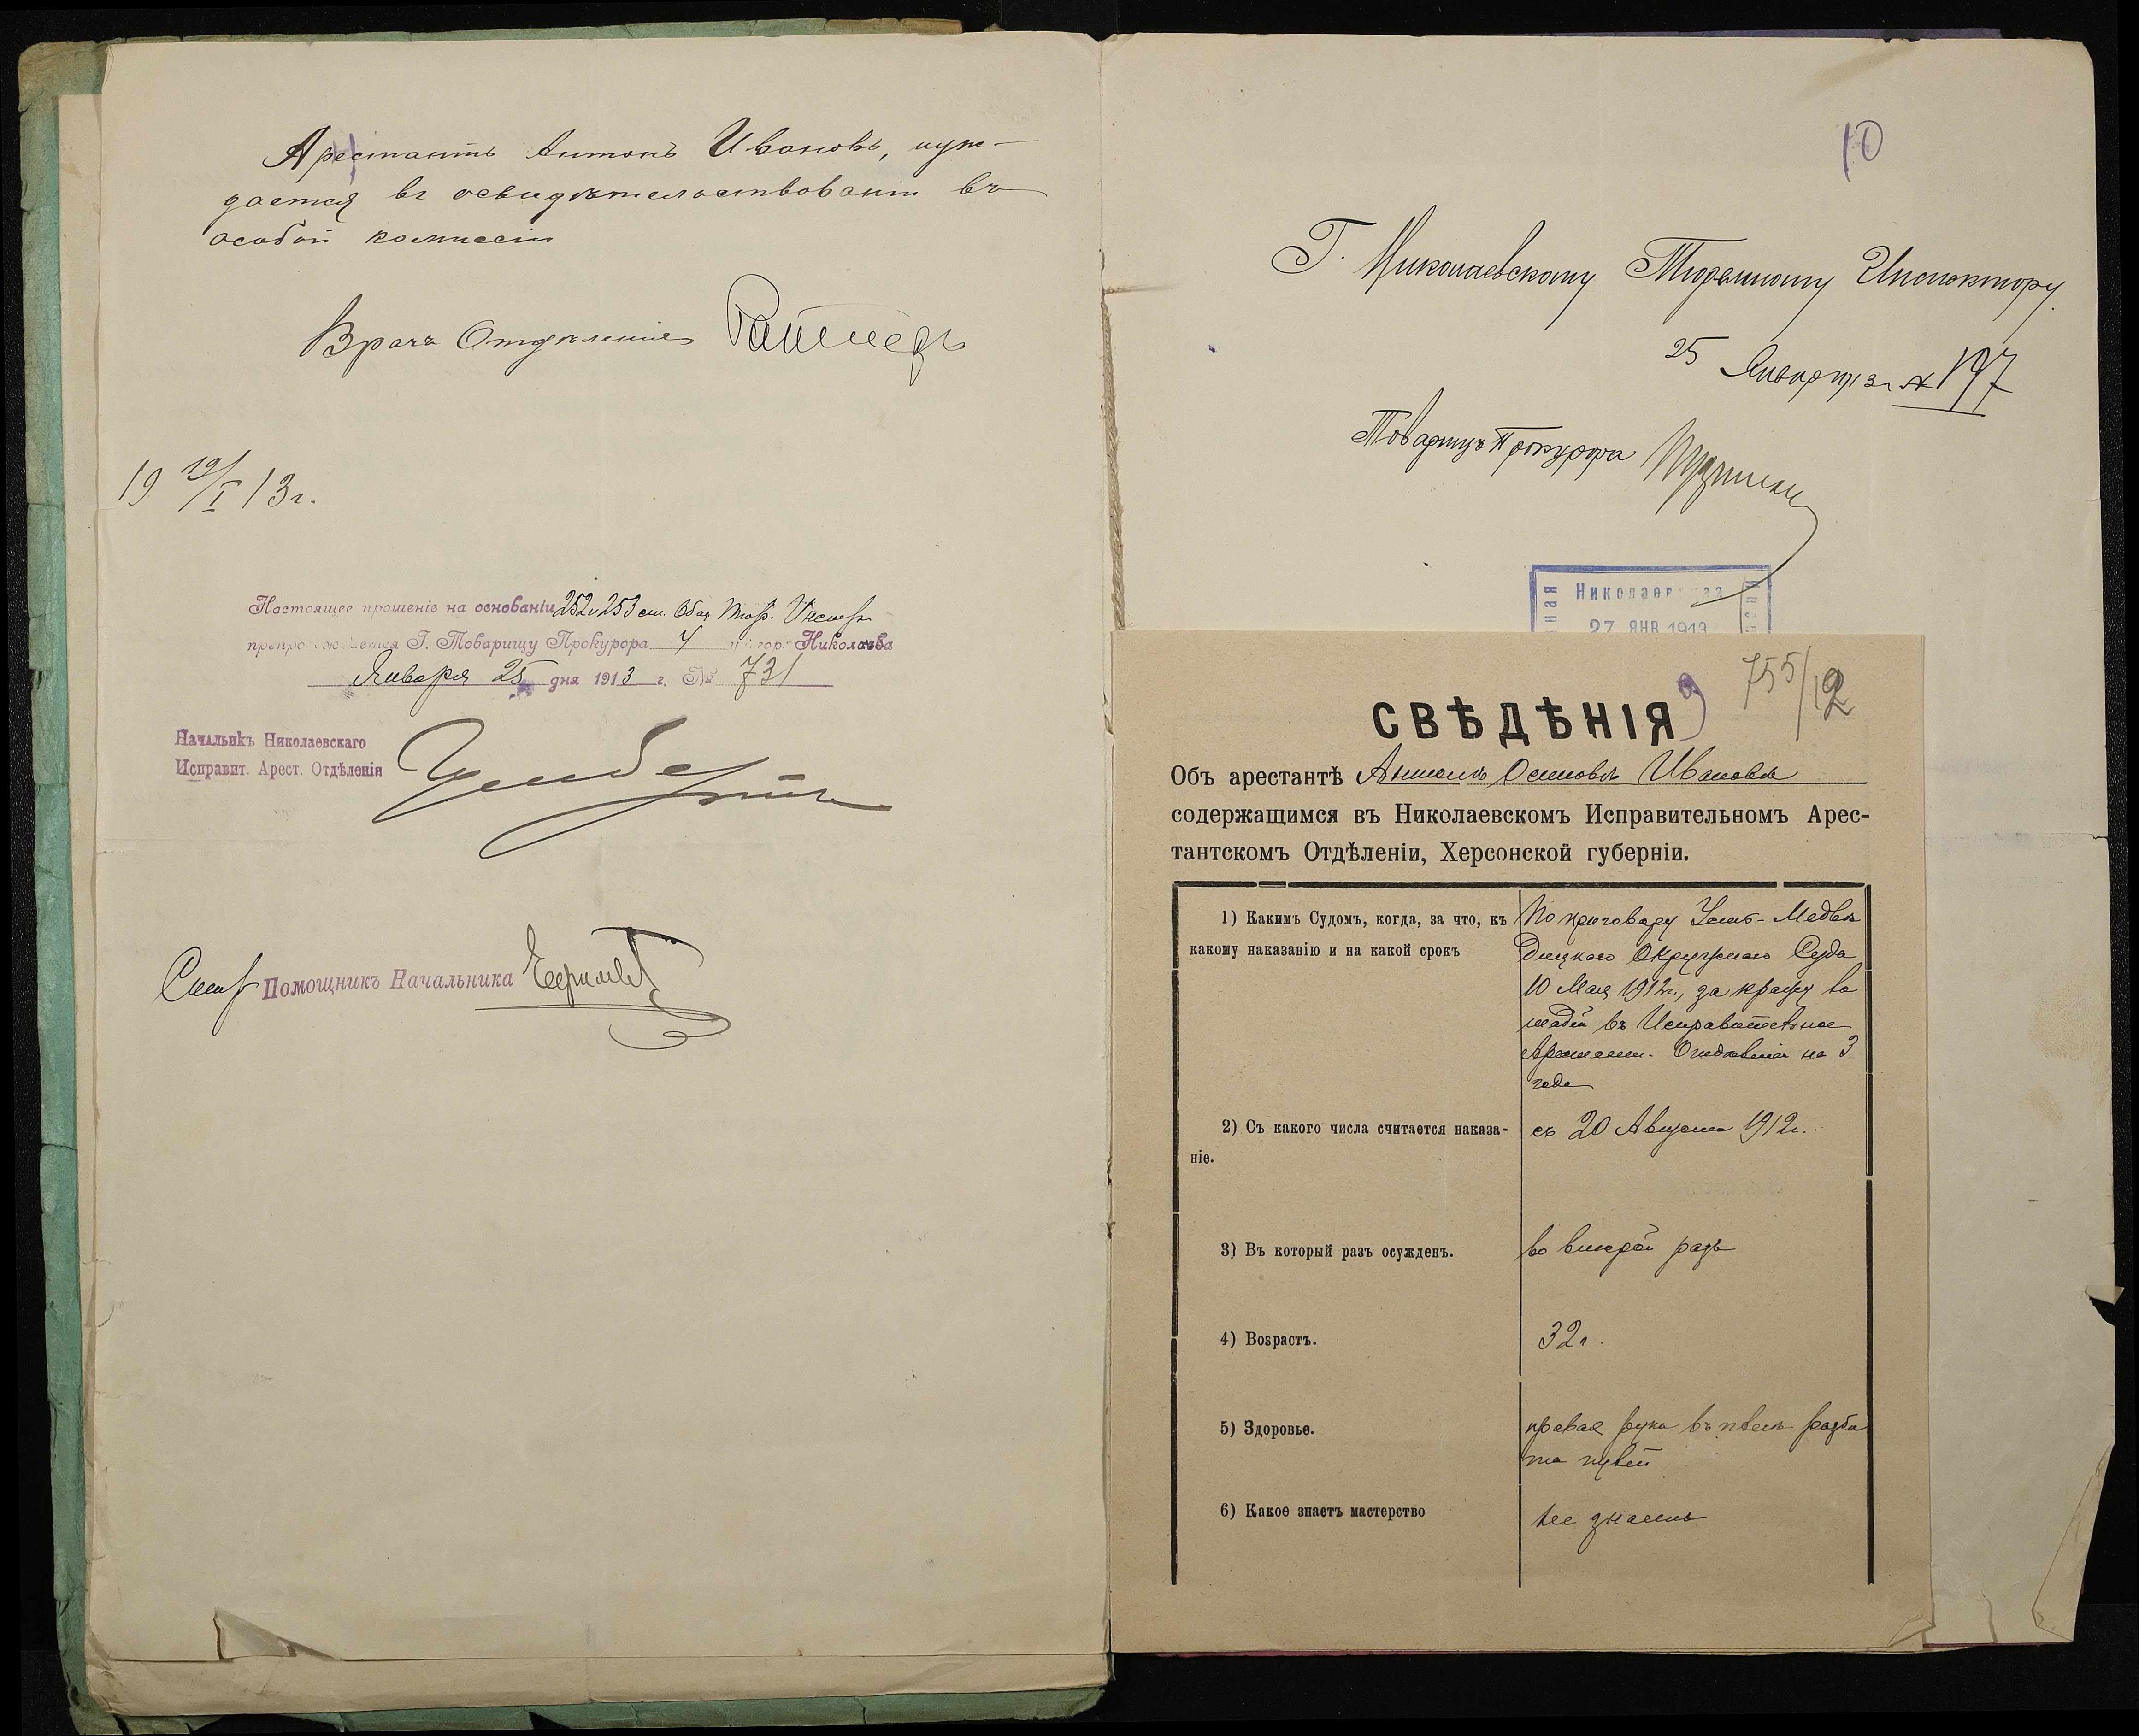 Арестантъ Антонъ Ивановъ, нуж-
дается въ освидѣтельствованіи въ
особой коммисіи
Врачъ Отдѣленія
19 19/I 13 г.
Настоящее прошеніе на основаніи 252 и 253 ст. Общ. Тюр. Инстр.
препровождается Г. Товарищу Прокурора 4 уч. гор. Николаева
Января 25 дня 1913 г. № 731
Начальникъ Николаевскаго
Исправит. Арест. Отдѣленія
Стар Помощникъ Начальника
10
Г. Николаевскому Тюремному Инспектору
25 Января 13 г. № 197
Товарищъ Прокурора
Николаевская
27 ЯНВ 1913
9 755/12
СВѢДѢНІЯ
Объ арестантѣ Антонѣ Осиповѣ Ивановѣ
содержащимся въ Николаевскомъ Исправительномъ Арес-
тантскомъ Отдѣленіи, Херсонской губерніи.
1) Какимъ Судомъ, когда, за что, къ
какому наказанію и на какой срокъ
По приговору Усть-Медвѣ
дицкаго Окружнаго Суда
10 Мая 1912 г., за кражу ло
шадей въ Исправительное
Арестант. Отдѣленіе на 3
года
2) Съ какого числа считается наказа-
ніе.
съ 20 Августа 1912 г.
3) Въ который разъ осужденъ.
во второй разъ
4) Возрастъ.
32 г.
5) Здоровье.
правая рука въ плечѣ разби
та пулей
6) Какое знаетъ мастерство
не знаетъ